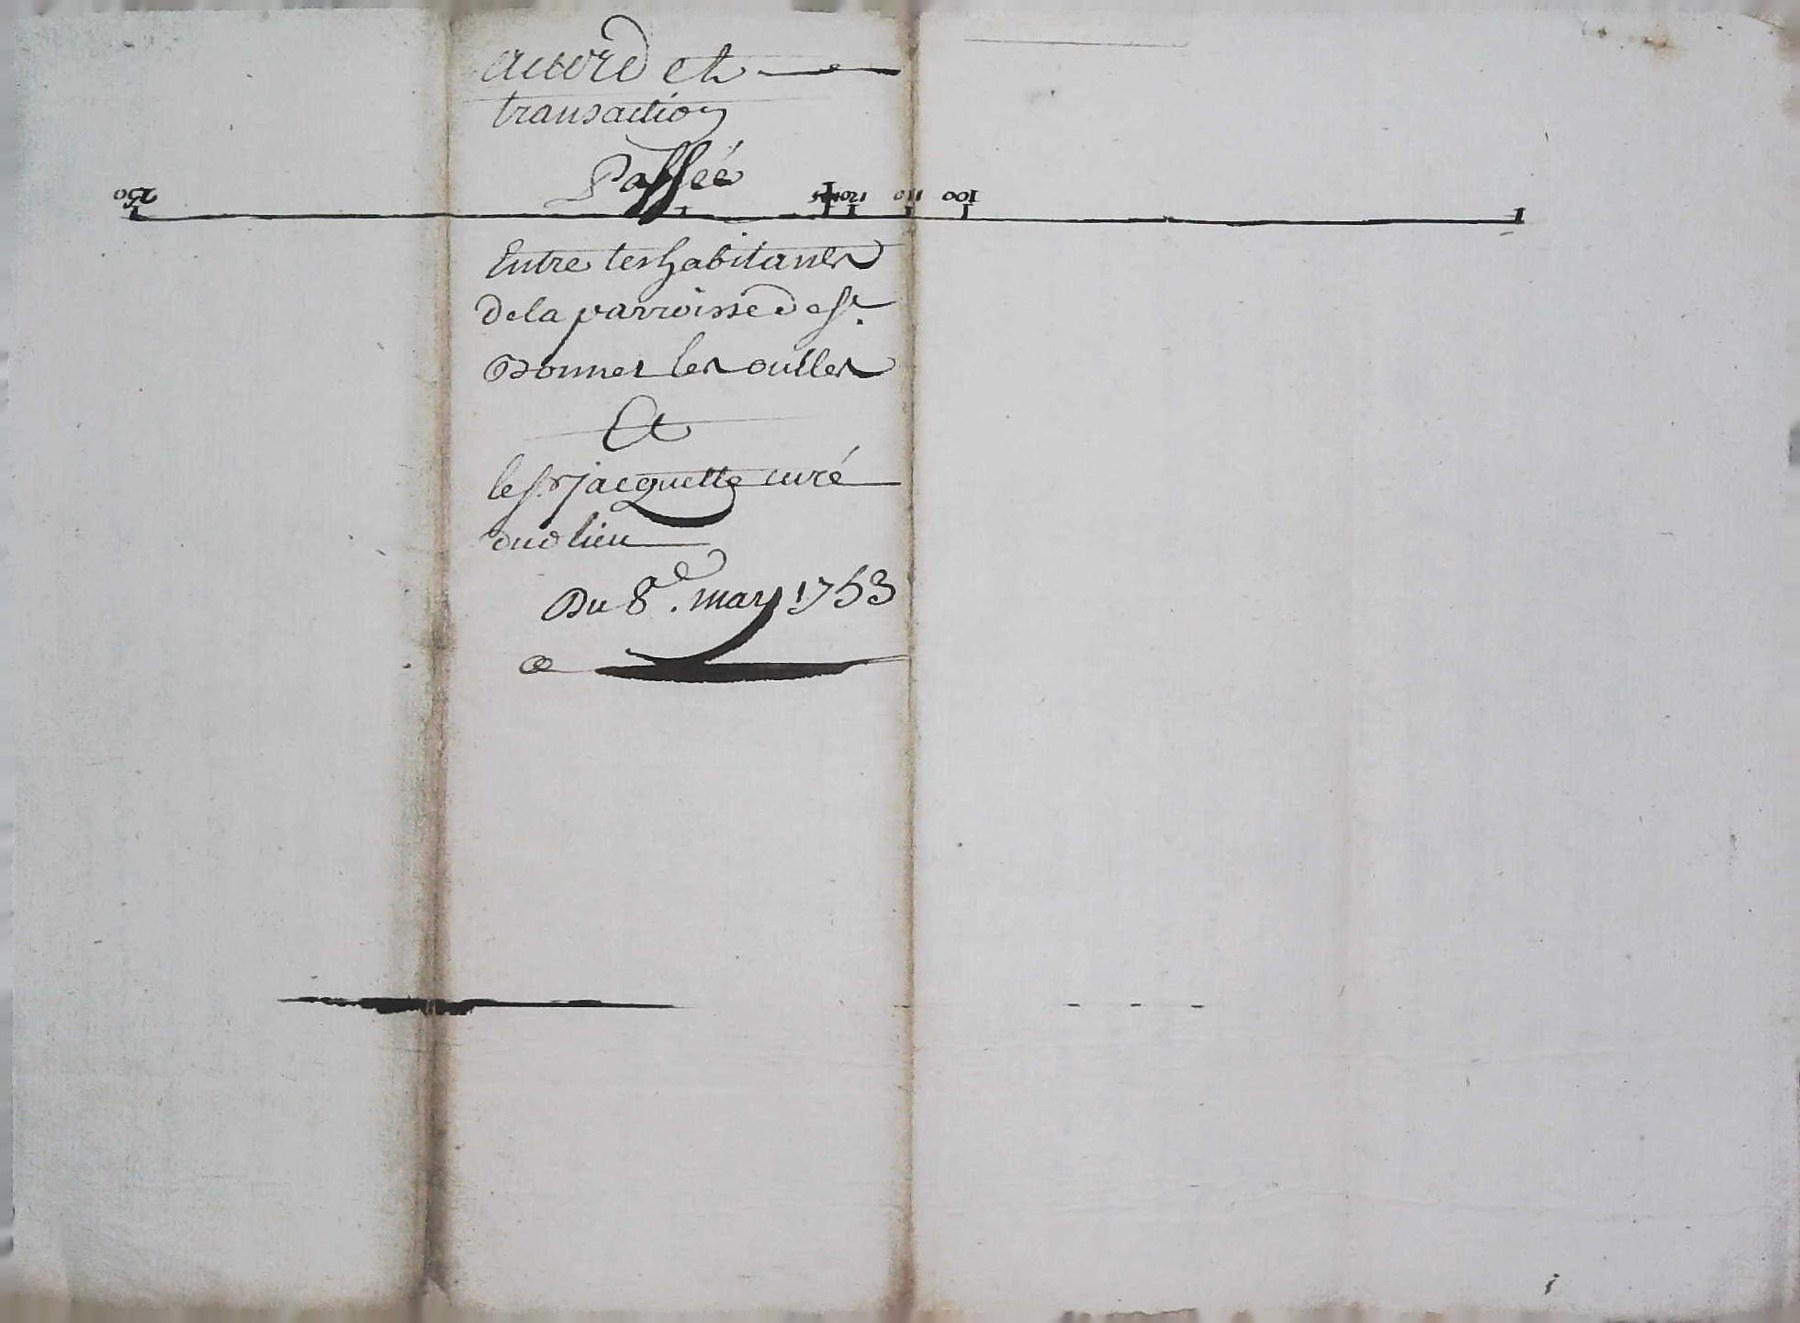 accord et
transaction
Passée
Entre les habitants
de la parroisse de St.
Bonnet les oulles
Et
le Sr. jacquette curé
dud lieu
Du 8e. may 1753
250 120 110 100 1